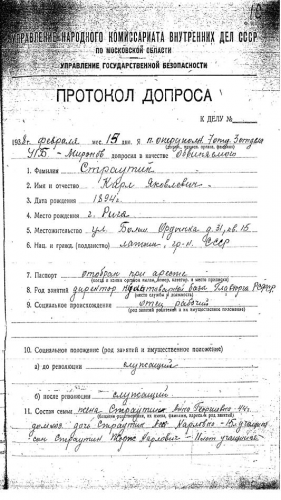 УПРАВЛЕНИЕ НАРОДНОГО КОМИССАРИАТА ВНУТРЕННИХ ДЕЛ СССР
ПО МОСКОВСКОЙ ОБЛАСТИ
УПРАВЛЕНИЕ ГОСУДАРСТВЕННОЙ БЕЗОПАСНОСТИ
ПРОТОКОЛ ДОПРОСА
К ДЕЛУ №
1938 г. февраля мес. 15 дня. Я,
УГБ - Миронов допросил в качестве обвиняемого
1. Фамилия Страутин
2. Имя и отчество Карл Яковлевич
3. Дата рождения 1894 г.
4. Место рождения г. Рига
5. Местожительство ул. Больш Ордынка д. 31, кв. 15
6. Нац. и гражд. (подданство) латыш, гр-н СССР
7. Паспорт отобран при аресте
8. Род занятий директор база Главторга РСФСР
(место службы и должность)
9. Социальное происхождение отец рабочий
(род занятий родителей и их имущественное положение)
10. Социальное положение (род занятий и имущественное положение)
а) до революции служащий
б) после революции служащий
11. Состав семьи жена Страутин Анна 44 г.
дочь Страутин Карловна учащаяся
сын Страутин Карлович учащийся